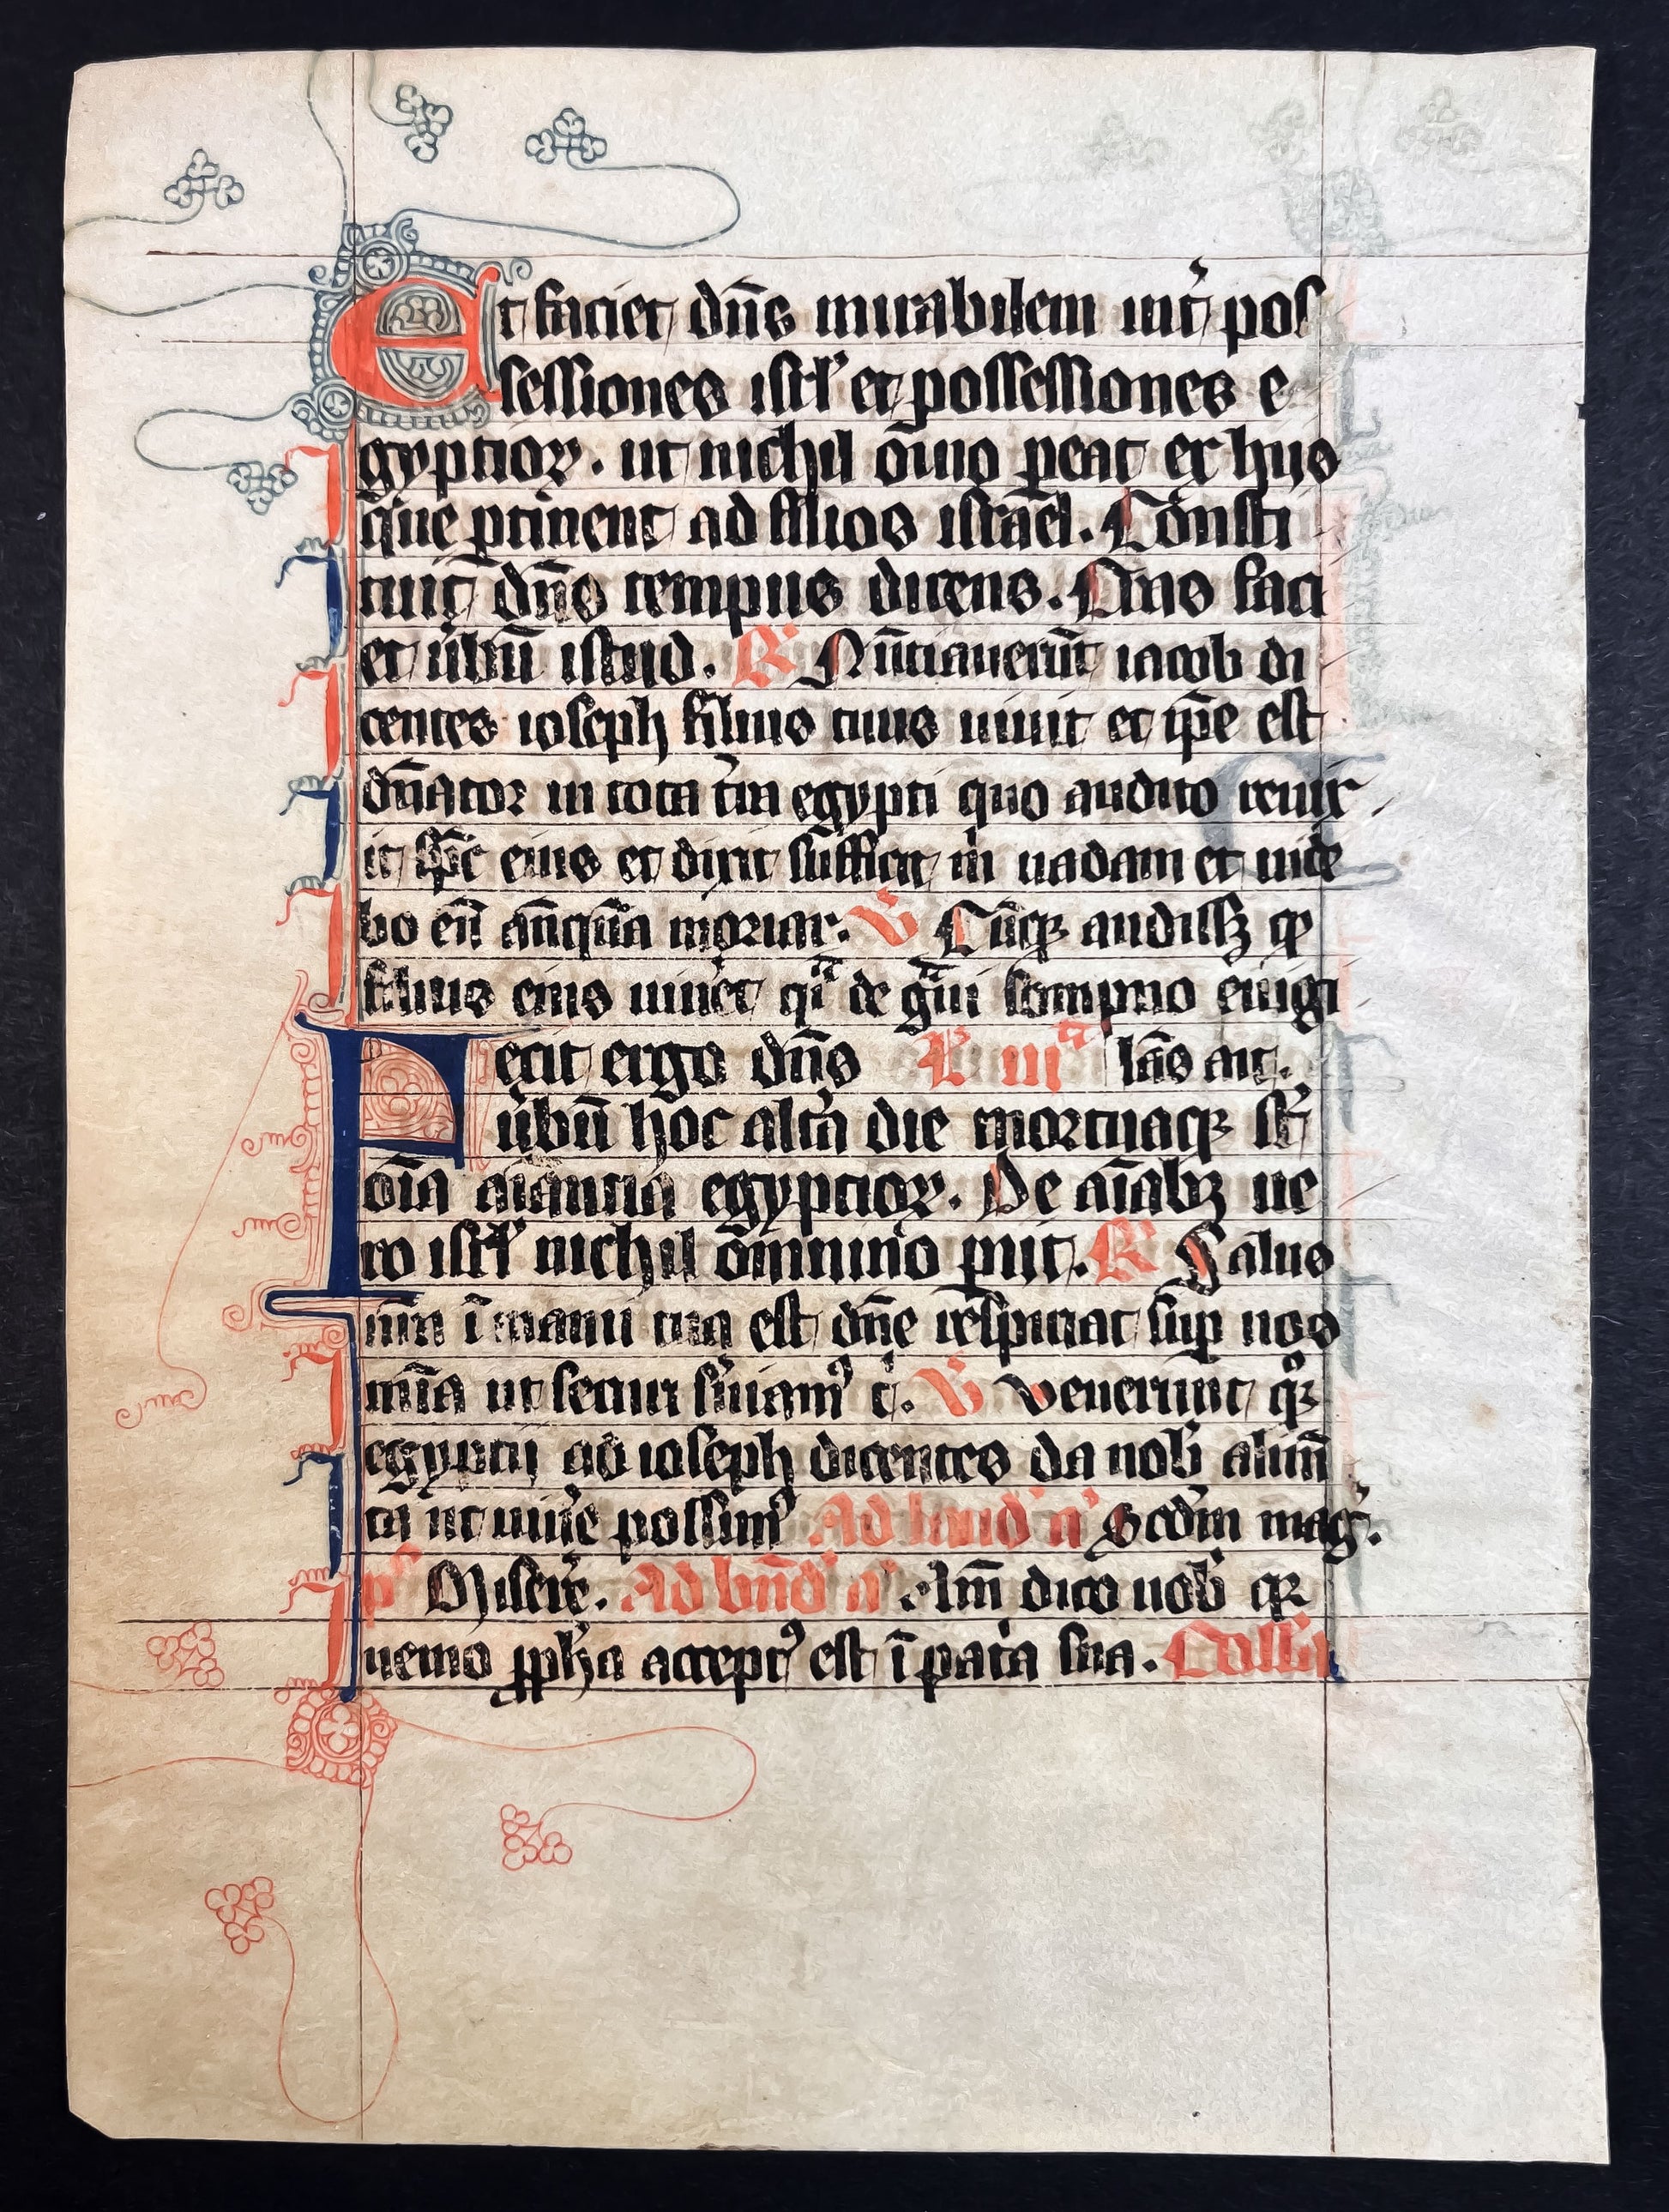 Et faciet dn̄s mirabilem int̕ pos
sessiones isrl̕ et possessiones e
gyptioꝝ. ut nichil om̄io ꝑeat ex hijs
que ꝑtinent ad filios israel. Consti
tuit dn̄s tempus dicens. Cras faci
et ūbū istud. R̕ Nūtiauerūt iacob di
centes ioseph filius tuus uiuit et ip̄e est
dn̄ator in tota t̕ra egypti quo audito reuix
it sp̄c eius et dixit sufficit m̕ uadam et uide
bo eū an̄qua moriar. V̕ Cūqꝫ audissꝫ ꝙ
filius eius uiu̕et qͥ de gͣui sompno euigi
Fecit ergo dn̄s L̕ iiiͣ lās ait.
ūbū hoc alt̕a die mortuaqꝫ st̕
om̄ia aīantia egyptioꝝ. De aīabꝫ ue
ro isrl̕ nichil om̄nino ꝑiit. R̕ Salus
nr̄a ī manu tua est dn̄e respiciat suꝑ nos
mīa ut securi s̕uiamꝰ t̕. V̕ Venerunt qꝫ
egyptij ad ioseph dicentes da nob̕ alim̄
ta ut uiu̕e possimꝰ Ad laud̕ a̕ Scd̄m mag̕.
pͬ Miser̕e. Ad bn̄d̕ a̕ Am̄ dico uob̕ qꝫ
nemo ꝓph̕a acceptꝰ est ī pat̕a sua. Coll̕a